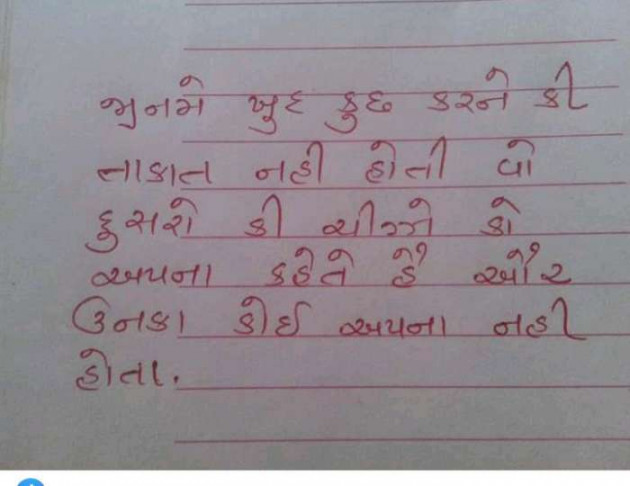 જીનમે ખુદ કુછ કરને કી
તાકાત નહી હોતી વો
દુસરો કી ચીજો કો
અપના કહેતે હૈ ઔર
ઉનકા કોઈ અપના નહી
હોતા.